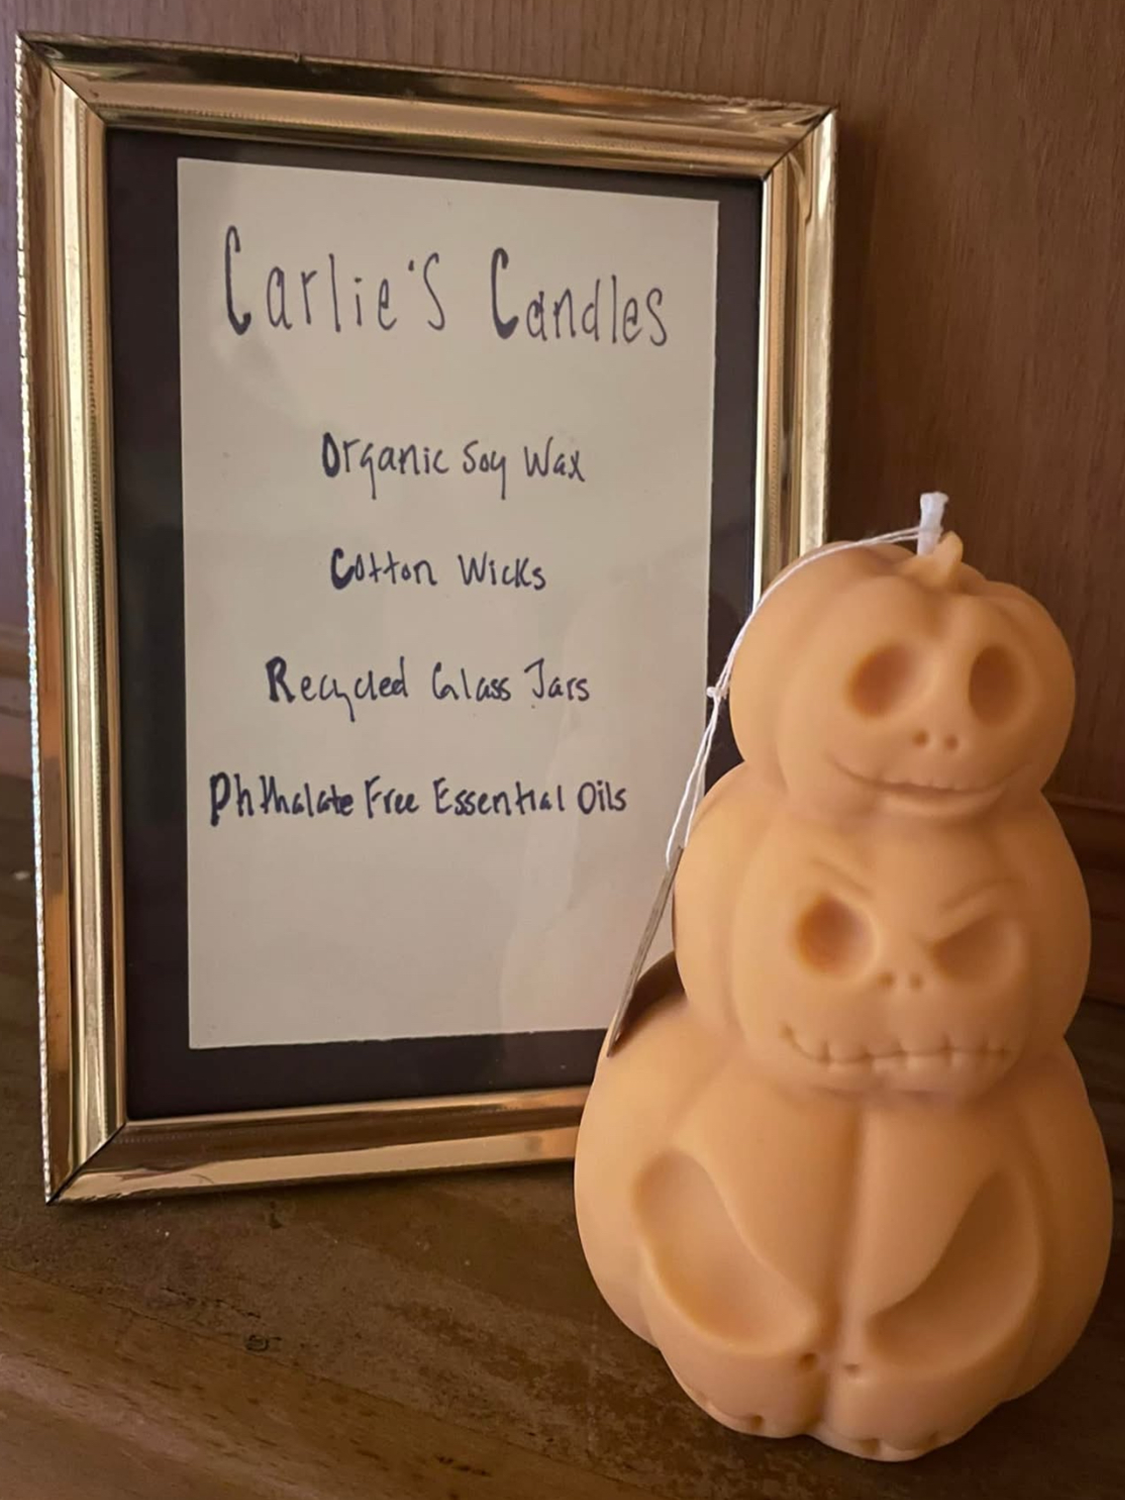 Carlie's Candles
Organic Soy Wax
Cotton Wicks
Recycled Glass Jars
Phthalate Free Essential Oils